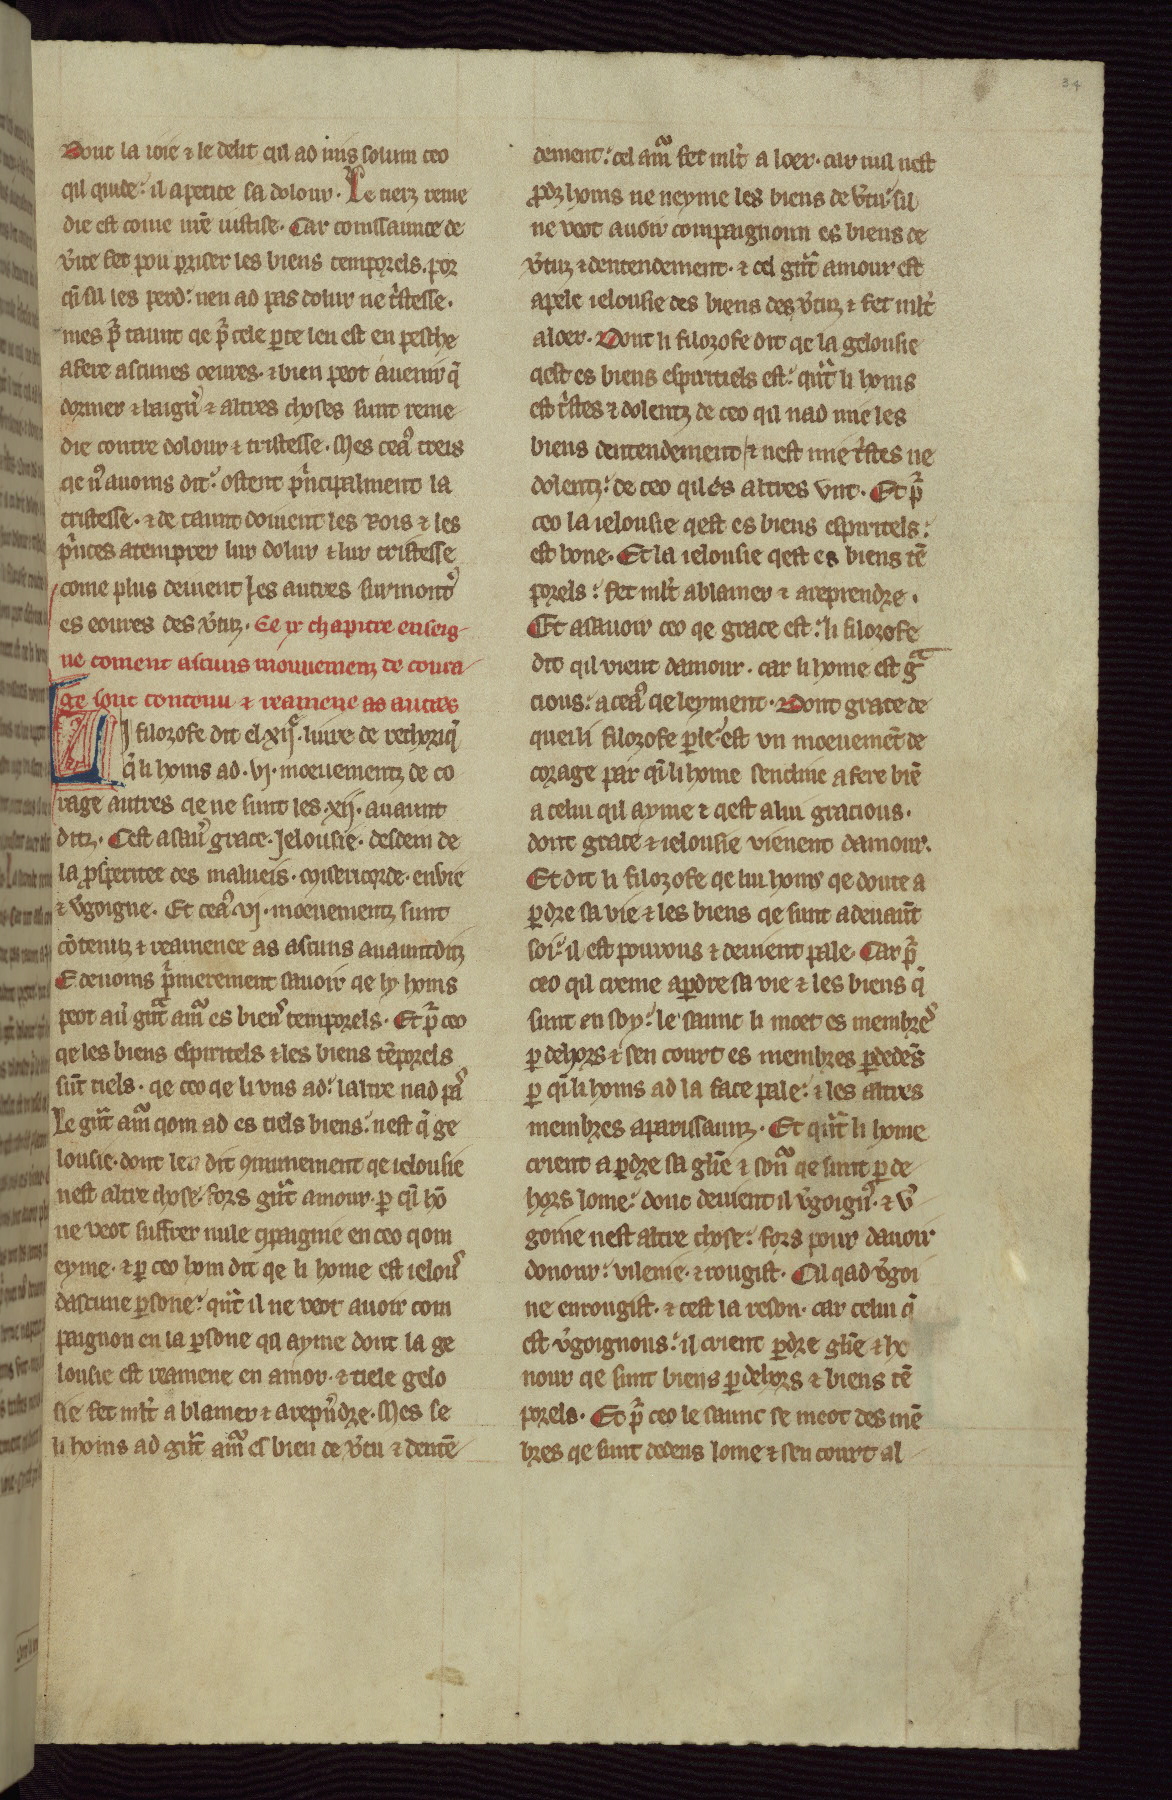 34
Dont la ioie ⁊ le delit qil ad mis solum ceo
qil quide: il apetice sa dolour. Le tierz reme
die est come mē iustise. Car conissaunce de
v̓ite fet pou priser les biens temporels. por
qͥ sil les perd: nen ad pas dolur ne tͥstesse.
mes pͬ taunt qe pͬ cele ꝑte len est en pesche
afere ascunes oeures. ⁊ bien peot auenir q̄
dormer ⁊ baigñ ⁊ altres choses sunt reme
die contre dolour ⁊ tristesse. Mes ceaˢ treis
qe nˢ auoms dit: ostent pͥncipalment la
tristesse. ⁊ de taunt doiuent les Rois ⁊ les
pͥnces atemprer lur dolur ⁊ lur tristesse
come plus deiuent les autres surmont̓
es eoures des v̓tuz. Le ix chapitre enseig
ne coment ascuns mouuemenz de coura
ge sont contenu ⁊ reamene as autres
LI filozofe dit el .xijͤ. liure de rethoriq̄
q̄ li homs ad .vj. moeuementz de co
rage autres qe ne sunt les .xij. auaunt
ditz. Cest asau̓ grace. Ielousie. desdein de
la ꝓsperitee des malueis. misericorde. enuie
⁊ v̓goigne. Et ceaˢ .vj. moeuementz sunt
cōtenuz ⁊ reamence as ascuns auauntditz
E deuoms pͥmerement sauoir qe ly homs
peot au̓ gūt amͦ es bienˢ temporels. Et pͬ ceo
qe les biens espiritels ⁊ les biens tēporels
sūt tiels. qe ceo qe li vns ad: laltre nad paˢ
Le gūt amͦ qom ad es tiels biens: nest q̄ ge
lousie. dont len dit ꝯmunement qe ielousie
nest altre chose fors gūt amour. ꝑ qͥ hō
ne veot suffrer nule ꝯpaignie en ceo qom
eyme. ⁊ ꝑ ceo hom dit qe li home est ielouˢ
dascune ꝑsone: qūt il ne veot auoir com
paignon en la ꝑsone qil ayme dont la ge
lousie est reamene en amor. ⁊ tiele gelo
sie fet mlt̓ a blamer ⁊ arepn̓dre. Mes se
li homs ad gūt amͦ es bien de v̓tu ⁊ dentē
dement: cel amͦ fet mlt̓ a loer. car nul nest
ꝓdz homs ne neyme les biens de v̓tu: sil
ne veot auoir compaignoun es biens de
v̓tuz ⁊ dentendement. ⁊ cel gūt amour est
apele ielousie des biens des v̓tuz ⁊ fet mlt̓
aloer. Dont li filozofe dit qe la gelousie
qest es biens espiritiels est: qūt li homs
est tͥstes ⁊ dolentz de ceo qil nad mie les
biens dentendement / ⁊ nest mie tͥstes ne
dolentz: de ceo qil es altres vnt. Et pͬ
ceo la ielousie qest es biens espiritels:
est bone. Et la ielousie qest es biens tē
porels: fet mlt̓ ablamer ⁊ areprendre.
Et asauoir ceo qe grace est: li filozofe
dit qil vient damour. car li home est gᵃ
cious: a ceaˢ qe leyment. Dont grace de
quei li filozofe ꝑle: est vn moeuemēt de
corage par qͥ li home sencline a fere biē
a celui qil ayme ⁊ qest a lui gracious.
dont grace ⁊ ielousie vienent damour.
Et dit li filozofe qe lui homs qe doute a
ꝑdre sa vie ⁊ les biens qe sunt adeuaūt
soi: il est pourous ⁊ deuient pale. Car pͬ
ceo qil creme aꝑdre sa vie ⁊ les biens q̄
sunt en soy: le saunc li moet es membreˢ
ꝑ dehors ⁊ sen court es membres ꝑdedēs
ꝑ qͥ li homs ad la face pale: ⁊ les altres
membres aparissauntz. Et qūt li home
crient a ꝑdre sa glīe ⁊ sonͦ qe sunt ꝑ de
hors lome: donc deuient il v̓goignˢ. ⁊ v̓
goine nest altre chose: fors pour dauoir
donour: vilenie. ⁊ rougist. Cil qad v̓goi
ne enrougist. ⁊ cest la reson. car celui q̄
est v̓goignous: il crient ꝑdre glīe ⁊ ho
nour qe sunt biens ꝑ dehors ⁊ biens tē
porels. Et pͬ ceo le saunc se meot des mē
bres qe sunt dedens lome ⁊ sen court al